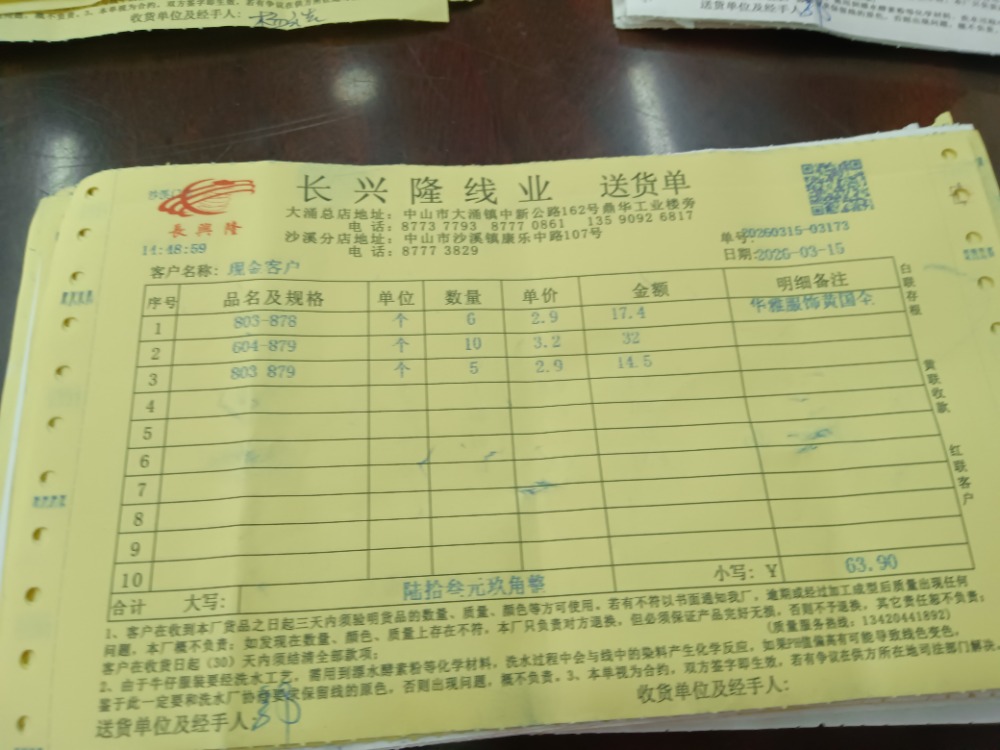 收货单位及经手人：
送货单位及经手人
長興隆
长兴隆线业 送货单
大涌总店地址：中山市大涌镇中新公路162号鼎华工业楼旁
电话：8773 7793 8777 0861 135 9092 6817
沙溪分店地址：中山市沙溪镇康乐中路107号
电话：8777 3829
14:48:59
单号:20260315-03173
日期:2026-03-15
客户名称：现金客户
序号 品名及规格 单位 数量 单价 金额 明细备注
1 803-878 个 6 2.9 17.4 华雅服饰黄国全
2 604-879 个 10 3.2 32
3 803 879 个 5 2.9 14.5
4
5
6
7
8
9
10
合计 大写： 陆拾叁元玖角整 小写：￥ 63.90
白联存根
黄联收款
红联客户
1、客户在收到本厂货品之日起三天内须验明货品的数量、质量、颜色等方可使用。若有不符以书面通知我厂，逾期或经过加工成型后质量出现任何
问题，本厂概不负责；如发现在数量、颜色、质量上存在不符，本厂只负责对方退换，但必须保证产品完好无损，否则不予退换，其它责任恕不负责；
客户在收货日起（30）天内须结清全部款项； （质量服务热线：13420441892）
2、由于牛仔服装要经洗水工艺，需用到漂水酵素粉等化学材料，洗水过程中会与线中的染料产生化学反应，如果PH值偏高有可能导致线色变色，
鉴于此一定要和洗水厂协商要求保留线的原色，否则出现问题，概不负责。3、本单视为合约，双方签字即生效，若有争议在供方所在地司法部门解决。
送货单位及经手人：
收货单位及经手人：